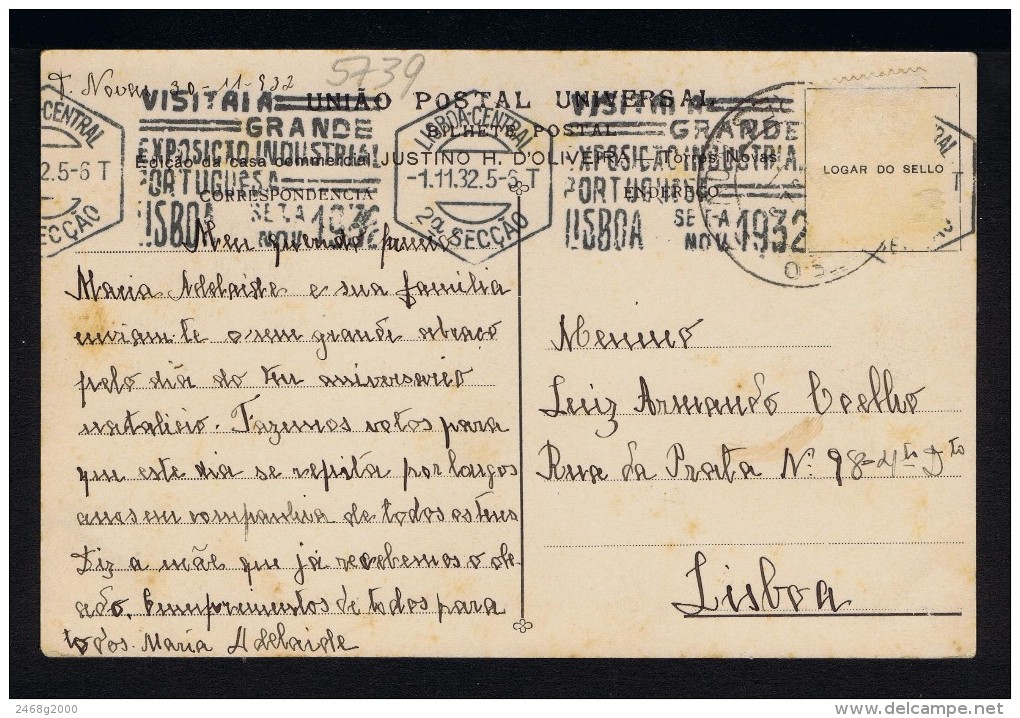 T. Novas 30-11-932
5739
VISITAI A GRANDE EXPOSIÇÃO INDUSTRIAL PORTUGUESA LISBOA SET.A NOV. 1932
UNIÃO POSTAL UNIVERSAL
BILHETE POSTAL
Edição da casa commercial JUSTINO H. D'OLIVEIRA — Torres Novas
CORRESPONDENCIA
ENDEREÇO
LISBOA-CENTRAL
-1.11.32.5-6 T
2ª SECÇÃO
VISITAI A GRANDE EXPOSIÇÃO INDUSTRIAL PORTUGUESA LISBOA SET.A NOV. 1932
LOGAR DO SELLO
Meu querido primo
Maria Adelaide e sua familia
enviam-te o sem grande abraço
pelo dia do teu aniversario
natalicio. Fazemos votos para
que este dia se repita por largos
anos em companhia de todos os teus
Diz a mãe que já recebemos o
Cumprimentos de todos para
todos. Maria Adelaide
Menino
Luiz Armando Coelho
Rua da Prata Nº 98-4to Dto
Lisboa
2468g2000
delcampe.net